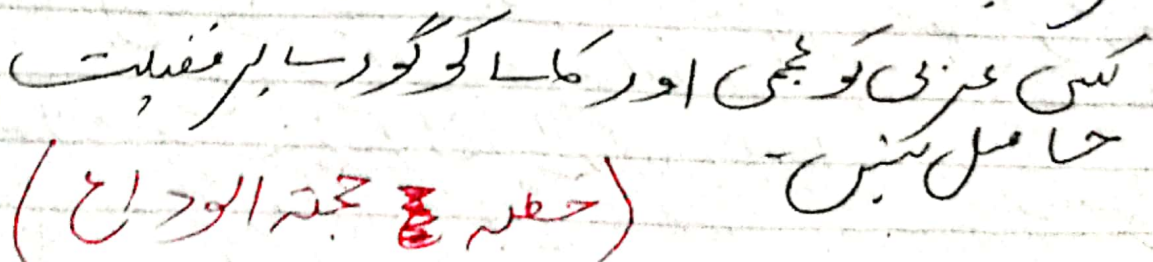 کسی عربی کو عجمی اور کالے کو گورے پر فضیلت
حاصل نہیں۔
(خطبہ حجتہ الوداع)